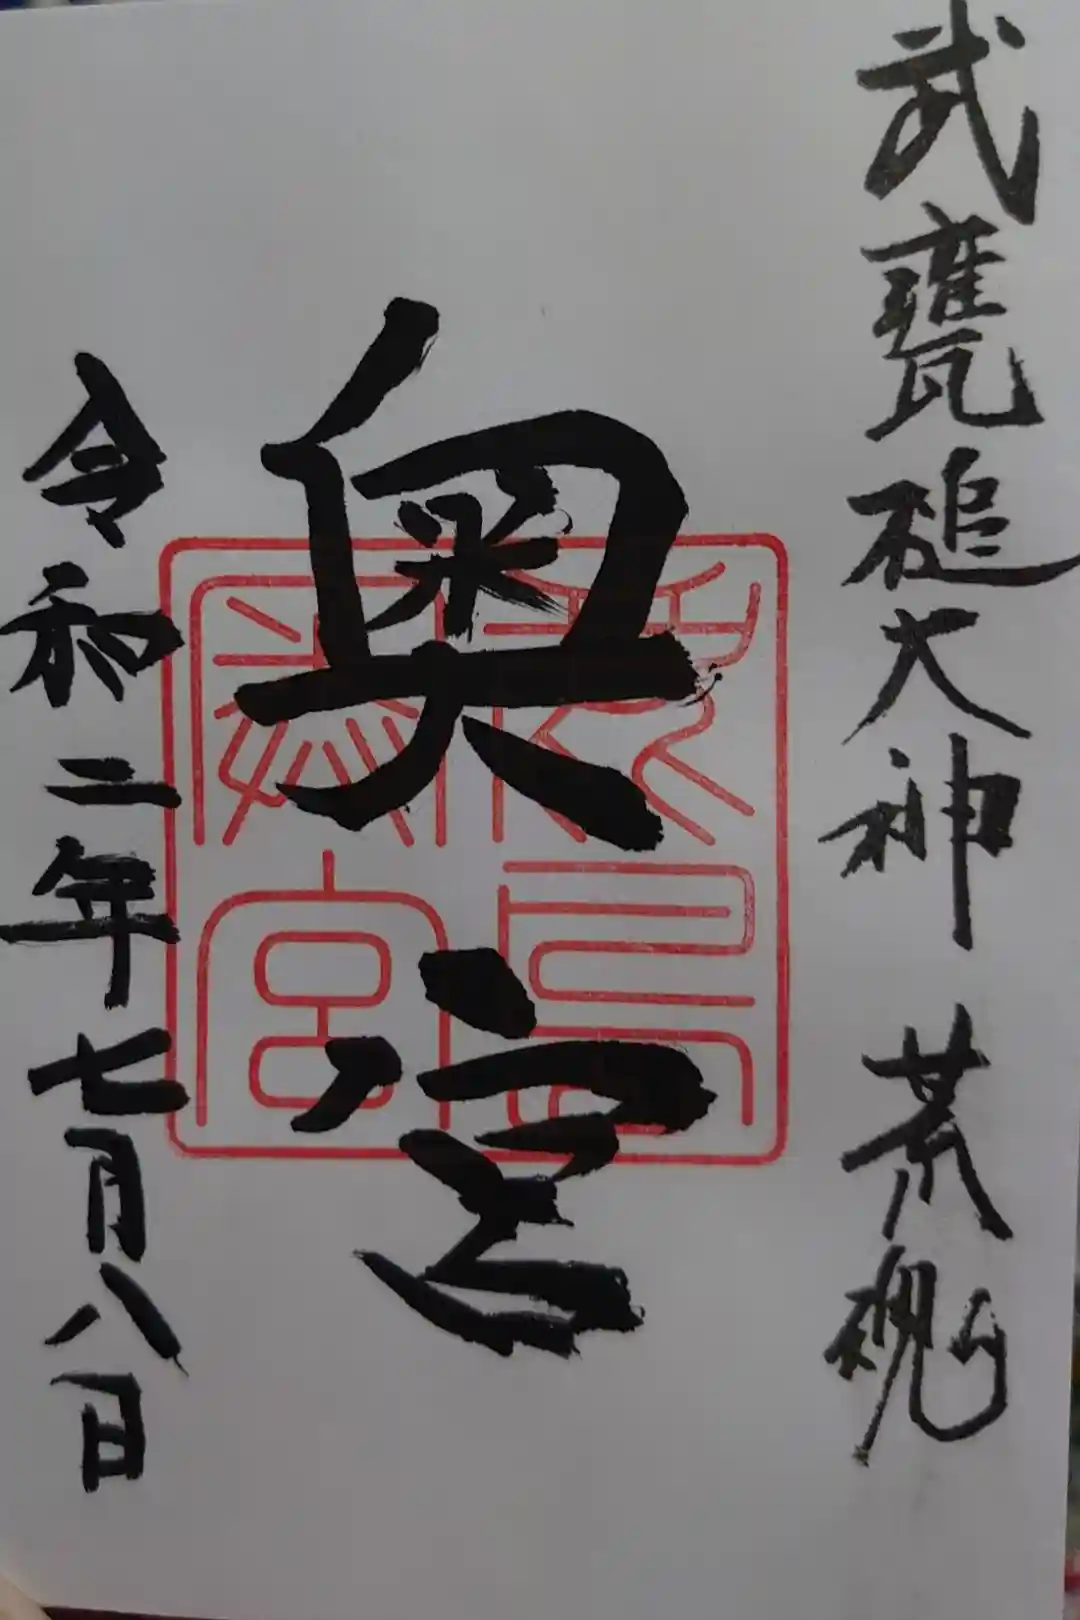 武甕槌大神 荒魂
奥宮
鹿島奥宮
令和二年七月八日